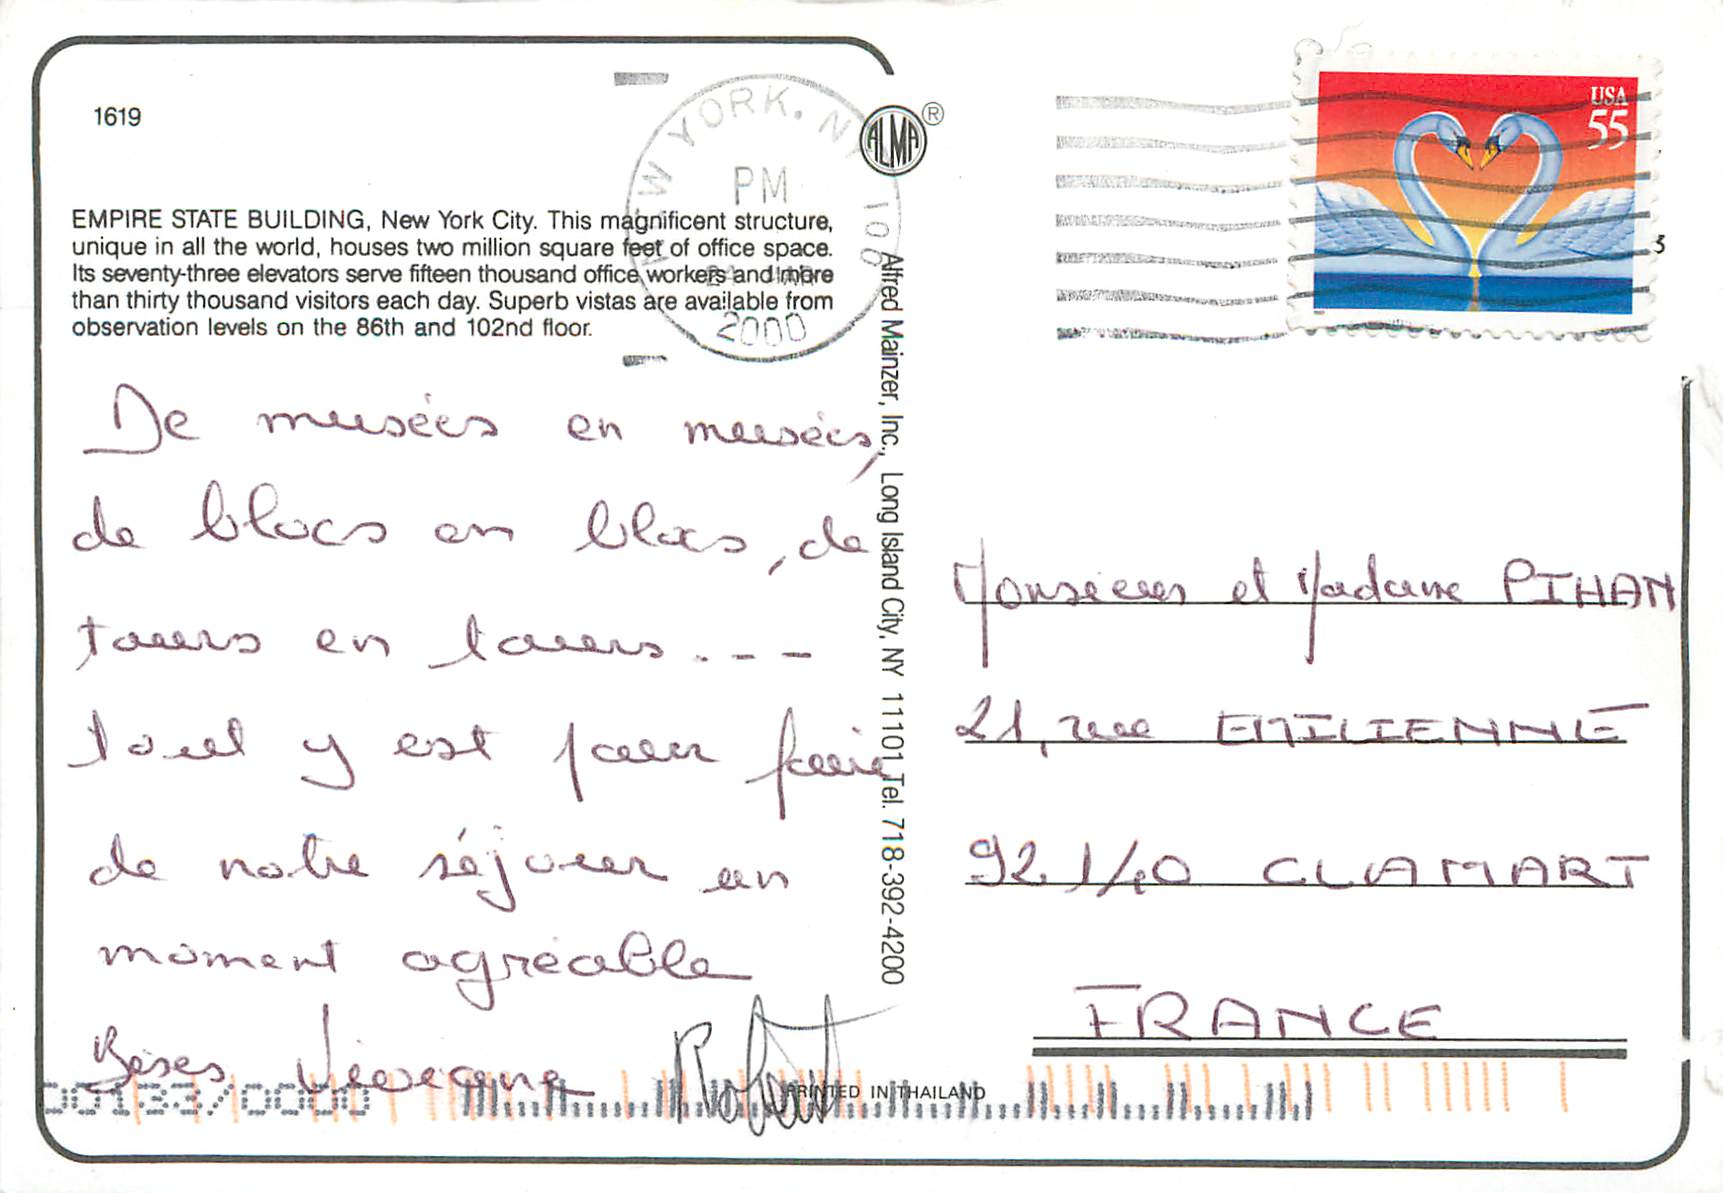 1619
EMPIRE STATE BUILDING, New York City. This magnificent structure,
unique in all the world, houses two million square feet of office space.
Its seventy-three elevators serve fifteen thousand office workers and more
than thirty thousand visitors each day. Superb vistas are available from
observation levels on the 86th and 102nd floor.
NEW YORK, NY 100
PM
2000
ALMA ®
USA
55
De musées en musées,
de blocs en blocs, de
tours en tours...
tout y est pour faire
de notre séjour un
moment agréable
Bises Viviane Robert
Alfred Mainzer, Inc., Long Island City, NY 11101 Tel. 718-392-4200
Monsieur et Madame PIHAN
21, rue EMILIENNE
92140 CLAMART
FRANCE
PRINTED IN THAILAND